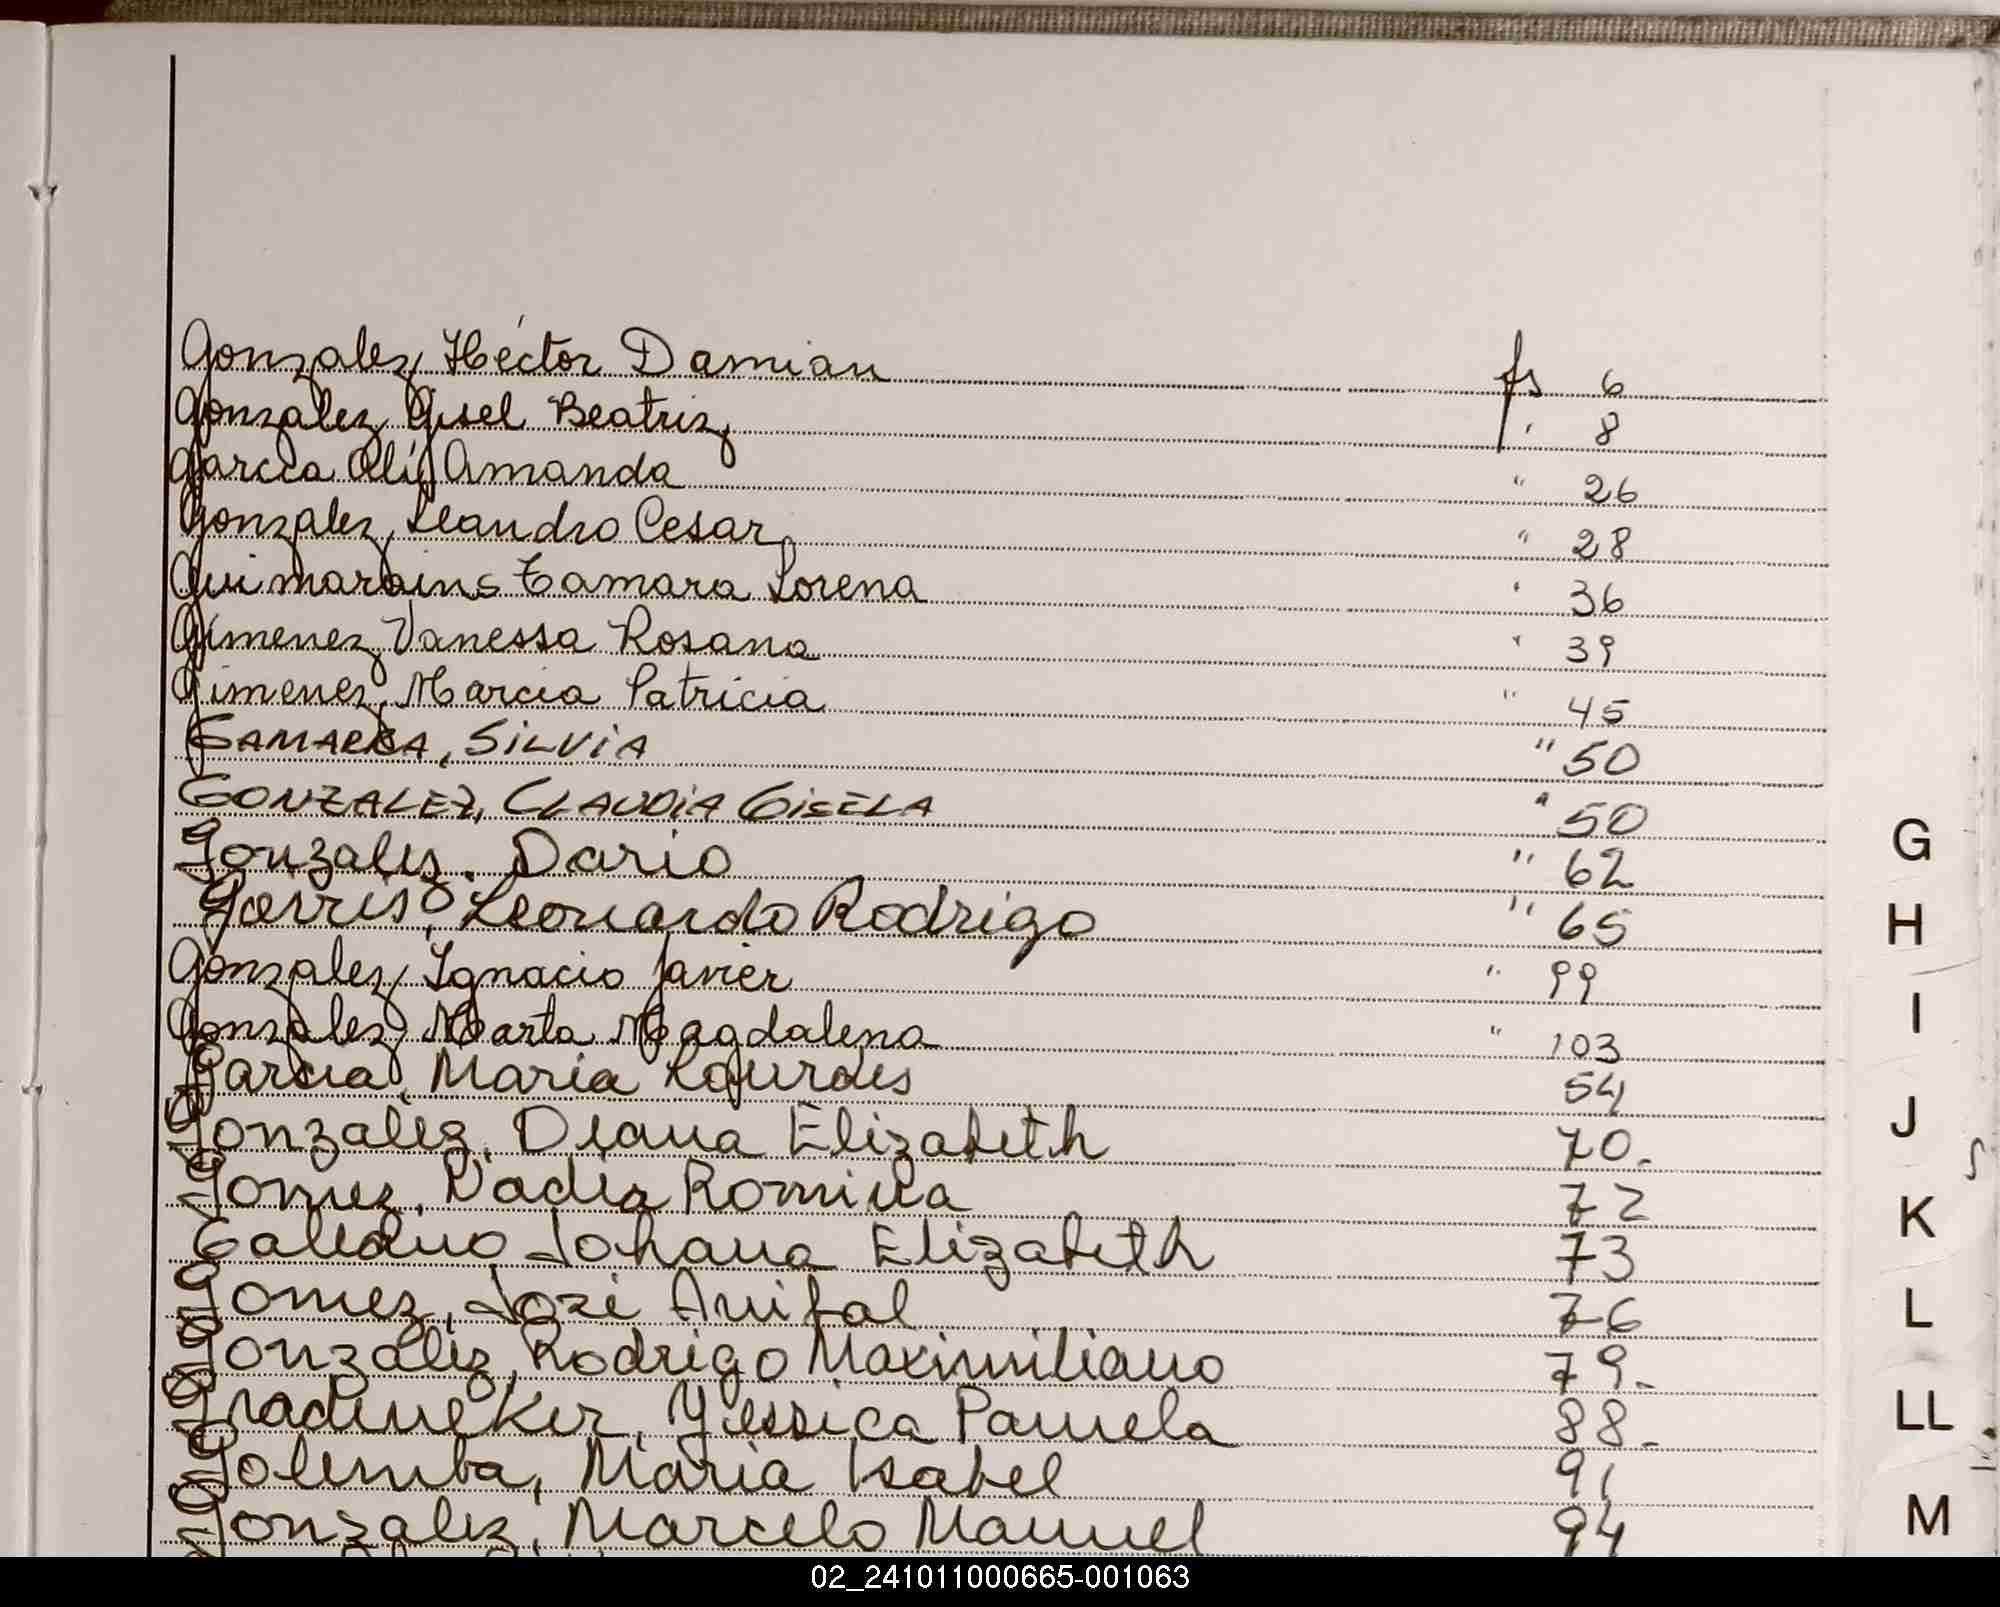 Gonzalez, Héctor Damian fs 6
Gonzalez Gisel Beatriz " 8
Garcia Ali, Amanda " 26
Gonzalez, Leandro Cesar " 28
Guimarains Tamara Lorena " 36
Gimenez Vanessa Rosana " 39
Gimenez, Marcia Patricia " 45
GAMARRA, SILVIA " 50
GONZALEZ, CLAUDIA GISELA " 50
Gonzalez. Dario " 62
Leonardo Rodrigo " 65
Gonzalez, Ignacio Javier " 99
Gonzalez, Marta Magdalena " 103
Garcia, Maria Lourdes 54
Gonzalez, Diana Elizabeth 70.
Gomez, Nadia Romina 72
Galeano Johana Elizabeth 73
Gomez, José Anibal 76
Gonzalez, Rodrigo Maximiliano 79.
Gradeneker, Yessica Pamela 88.
Golemba, Maria Isabel 91
Gonzalez, Marcelo Manuel 94
G
H
I
J
K
L
LL
M
02_241011000665-001063